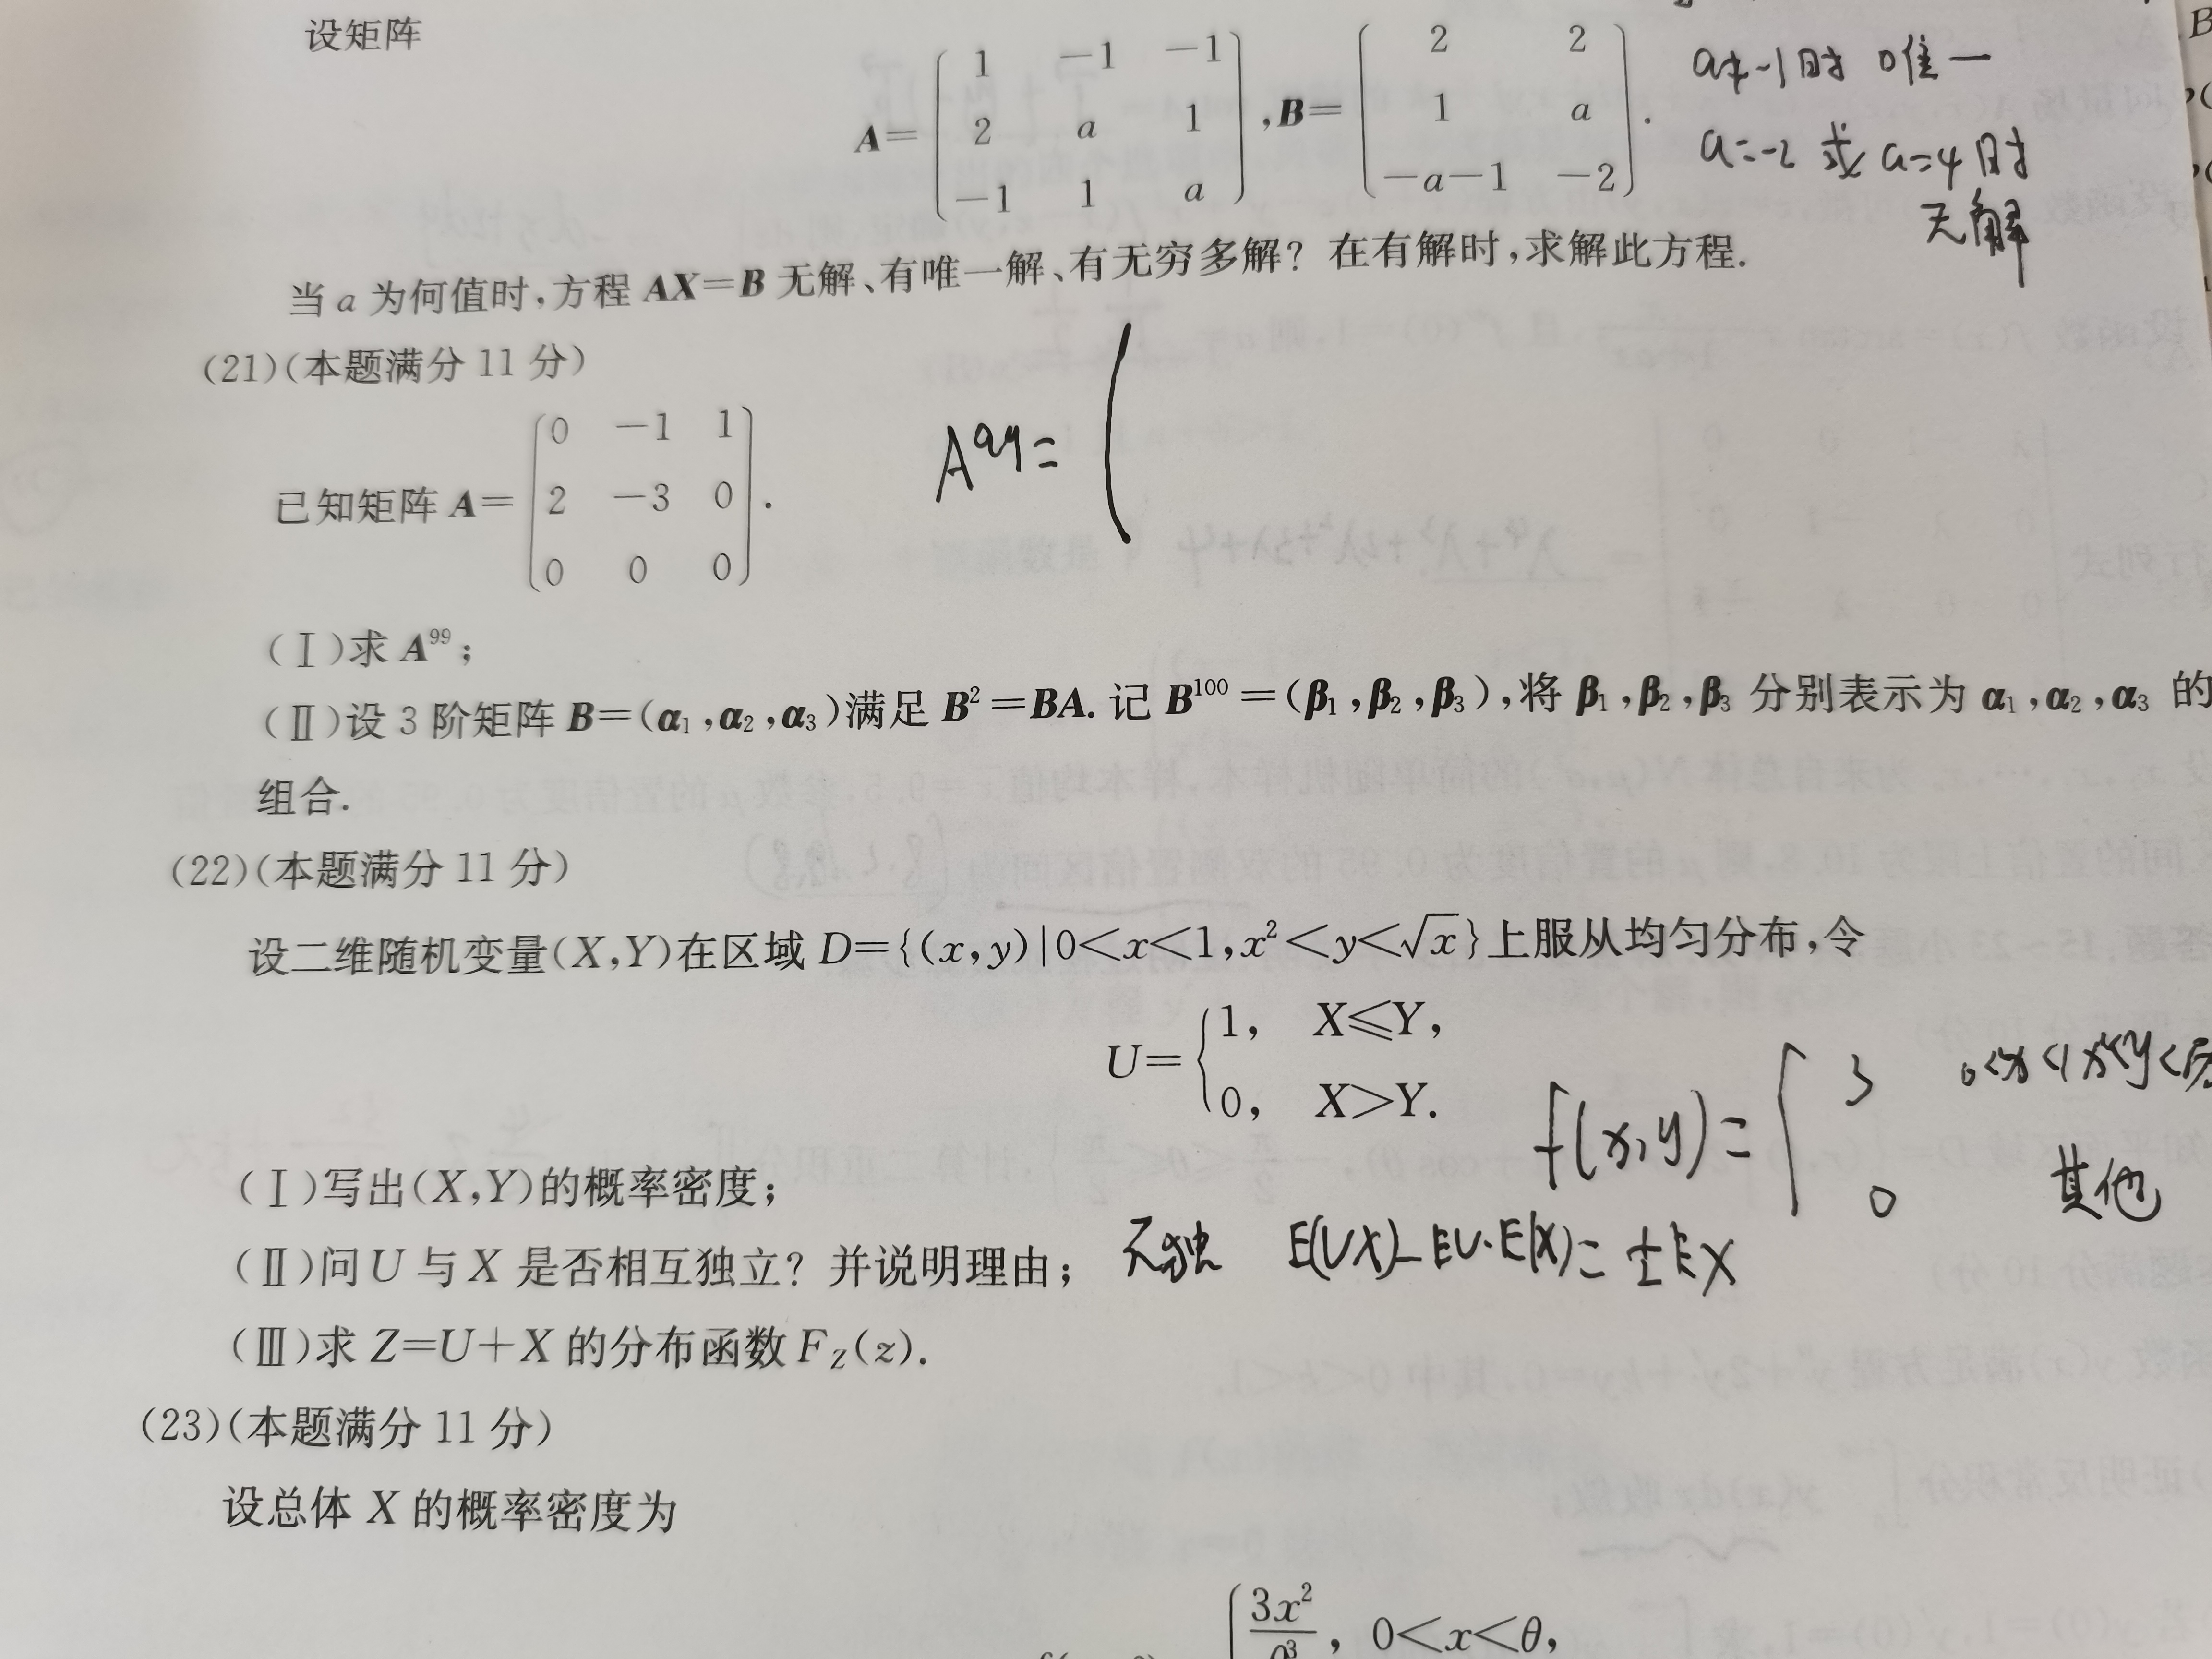 设矩阵
A=(1 -1 -1
2 a 1
-1 1 a), B=(2 2
1 a
-a-1 -2).
a≠-1时 唯一
a=-2 或 a=4时
无解
当 a 为何值时,方程 AX=B 无解、有唯一解、有无穷多解? 在有解时,求解此方程.
(21)(本题满分 11 分)
已知矩阵 A=(0 -1 1
2 -3 0
0 0 0).
A⁹⁹=(
(Ⅰ)求 A⁹⁹;
(Ⅱ)设 3 阶矩阵 B=(α₁,α₂,α₃)满足 B²=BA. 记 B¹⁰⁰=(β₁,β₂,β₃),将 β₁,β₂,β₃ 分别表示为 α₁,α₂,α₃ 的
组合.
(22)(本题满分 11 分)
设二维随机变量(X,Y)在区域 D={(x,y)|0<x<1,x²<y<√x}上服从均匀分布,令
U={1, X≤Y,
0, X>Y.
f(x,y)={3 0<x<1 x²<y<√x
0 其他
(Ⅰ)写出(X,Y)的概率密度;
(Ⅱ)问 U 与 X 是否相互独立? 并说明理由;
不独 E(UX)-EU·E(X)=
(Ⅲ)求 Z=U+X 的分布函数 F_Z(z).
(23)(本题满分 11 分)
设总体 X 的概率密度为
3x²/θ³, 0<x<θ,